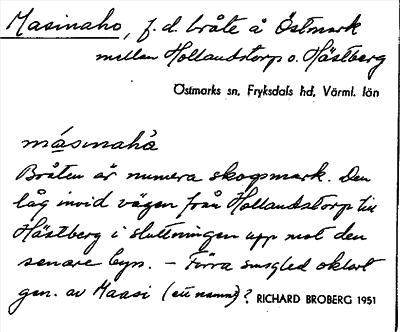 Masinaho, f.d. bråte å Östmark
mellan Hollandstorp o. Hästberg
Östmarks sn, Fryksdals hd, Värml. län
másınahå
Bråten är numera skogsmark. Den
låg invid vägen från Hollandstorp till
Hästberg i sluttningen upp mot den
senare byn. – Förra smsgled oklart
gen. av Maasi (ett namn)? RICHARD BROBERG 1951